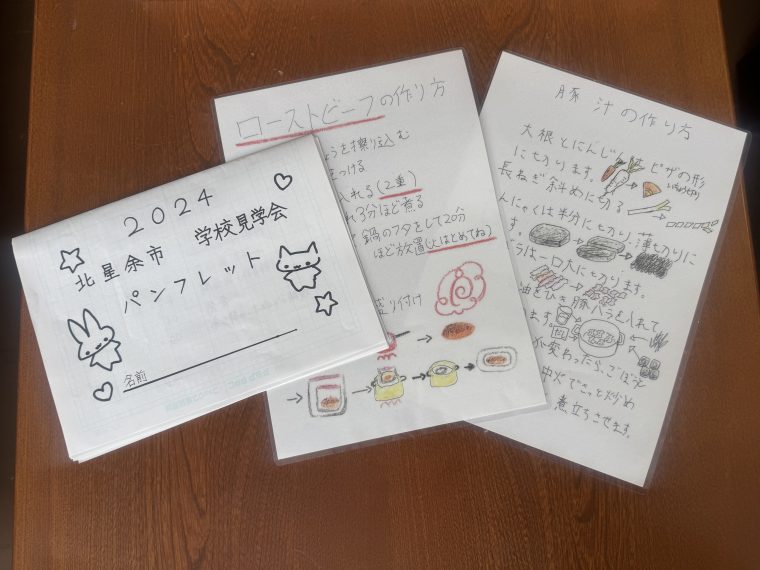 2024
北星余市 学校見学会
パンフレット
名前
ローストビーフの作り方
ょうを擦り込む
をつける
入れる(2重)
れ3分ほど煮る
鍋のフタをして20分
ほど放置(火はとめてね)
盛り付け
豚汁の作り方
大根とにんじんは ピザの形
にも切ります。
いちょう切り
長ねぎ斜めに切る
んにゃくは半分に切り、薄切りに
す。
うは一口大に切ります。
油をひき豚バラを入れて
ます。
が変わったら、ごぼう
中火でさっと炒め
煮立たせます。